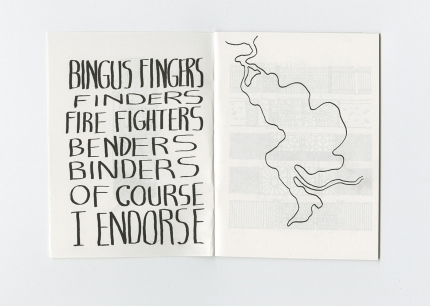 BINGUS FINGERS
FINDERS
FIRE FIGHTERS
BENDERS
BINDERS
OF COURSE
I ENDORSE